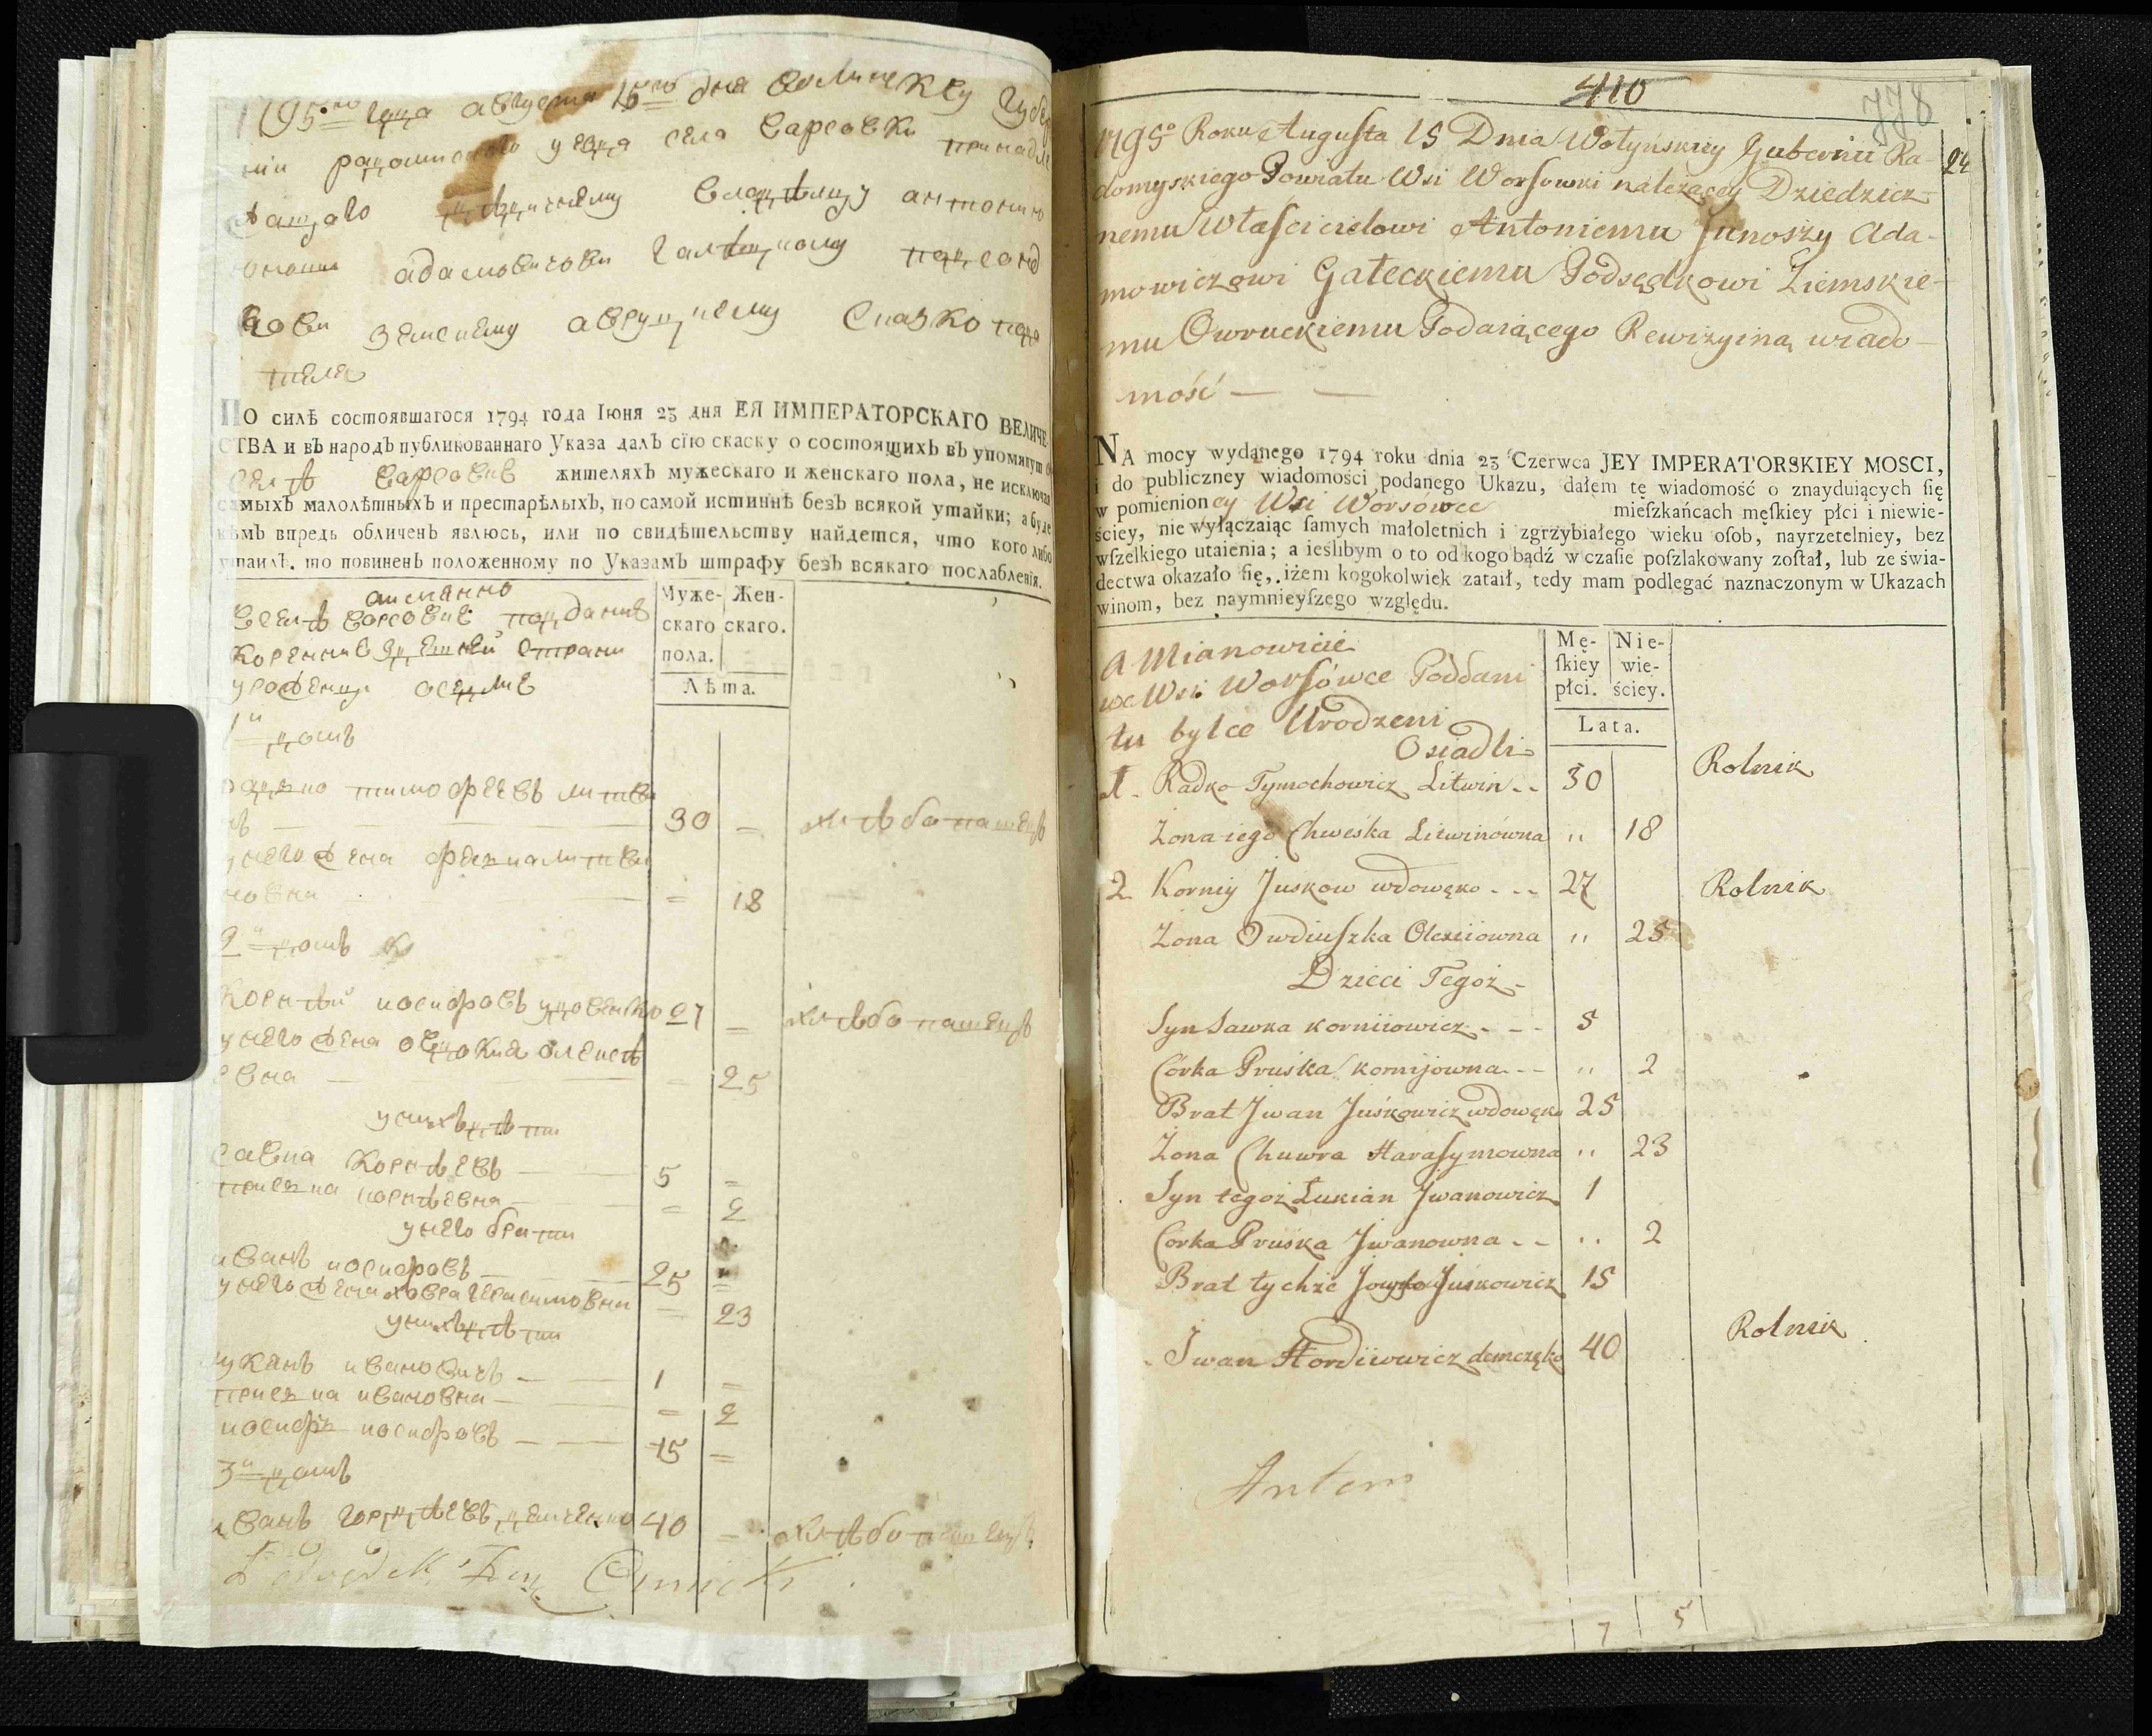 1795го года августа 15го дня волинскеу губер
нии радомиского уезда села варсовки принадле
жащаго дѣдичнему владѣлцу антонию
юноши адамовичови галѣцкому подсенд
кови земскему авруцкему сказкоподо
теля
ПО силѣ состоявшагося 1794 года Іюня 23 дня ЕЯ ИМПЕРАТОРСКАГО ВЕЛИЧЕ-
СТВА и въ народъ публикованнаго Указа далъ сїю скаску о состоящихъ въ упомянутой
селѣ варсовке жителяхъ мужескаго и женскаго пола, не исключая
самыхъ малолѣтныхъ и престарѣлыхъ, по самой истиннѣ безъ всякой утайки; а буде
кѣмъ впредь обличенъ явлюсь, или по свидѣтельству найдется, что кого либо
утаилъ. то повиненъ положенному по Указамъ штрафу безъ всякаго послабленїя.
аимянно
Муже- Жен-
вселѣ варсовке поддание
скаго скаго.
коренние здешней страни
пола.
уроженци оседлие
Лѣта.
1й домъ
радко тимофеевъ литви
нъ 30 хлѣбопашецъ
унего жена феська литви
новна 18
2й домъ
Корнѣй иосифовъ удовенко 27 хлѣбопашецъ
унего жена овдокия олексѣ
евна 25
унихъ дѣти
савка корнѣевъ 5
приська корнѣевна 2
унего брати
иванъ иосифовъ 25
унего жена ховра герасимовна 23
унихъ дѣти
лукянъ ивановичъ 1
приська ивановна 2
иосифъ иосифовъ 15
3й домъ
иванъ гордѣевъ демченко 40 хлѣбопашецъ
410
778
24
1795o Roku Augusta 15 Dnia Wołyńskiey Gubernii Ra-
domyskiego Powiatu Wsi Worsowki należącey Dziedzicz-
nemu Właścicielowi Antoniemu Junoszy Ada-
mowiczowi Gałeckiemu Podsędkowi Ziemskie-
mu Owruckiemu Podaiącego Rewizyiną wiado-
mość —
NA mocy wydanego 1794 roku dnia 23 Czerwca JEY IMPERATORSKIEY MOSCI,
i do publiczney wiadomości podanego Ukazu, dałem tę wiadomość o znayduiących ſię
w pomienioncy Wsi Worsówce mieſzkańcach męſkiey płci i niewie-
ściey, nie wyłączaiąc ſamych małoletnich i zgrzybiałego wieku oſob, nayrzetelniey, bez
wſzelkiego utaienia; a ieslibym o to od kogo bądź w czaſie poſzlakowany zoſtał, lub ze świa-
dectwa okazało ſię, iżem kogokolwiek zataił, tedy mam podlegać naznaczonym w Ukazach
winom, bez naymnieyſzego względu.
A Mianowicie
Mę- Nie-
we Wsi Worsówce Poddani
ſkiey wie-
płci. ściey.
tu bylce Urodzeni
Lata.
Osiadli
1. Radko Tymochowicz Litwin 30 Rolnik
Żona iego Chweśka Litwinówna „ 18
2 Korniy Juskow wdowęko 27 Rolnik
Żona Owdiuszka Olexiiowna „ 25
Dzieci Tegoż
Syn Sawka Korniiowicz 5
Córka Pruśka Kornijowna „ 2
Brat Jwan Juśkowicz wdowęko 25
Żona Chuwra Harasymowna „ 23
Syn tegoż Łukian Jwanowicz 1
Córka Pruśka Jwanowna „ 2
Brat tychże Juśkowicz 15
Jwan Hordiiowicz demczęko 40 Rolnik
Antoni
7 5